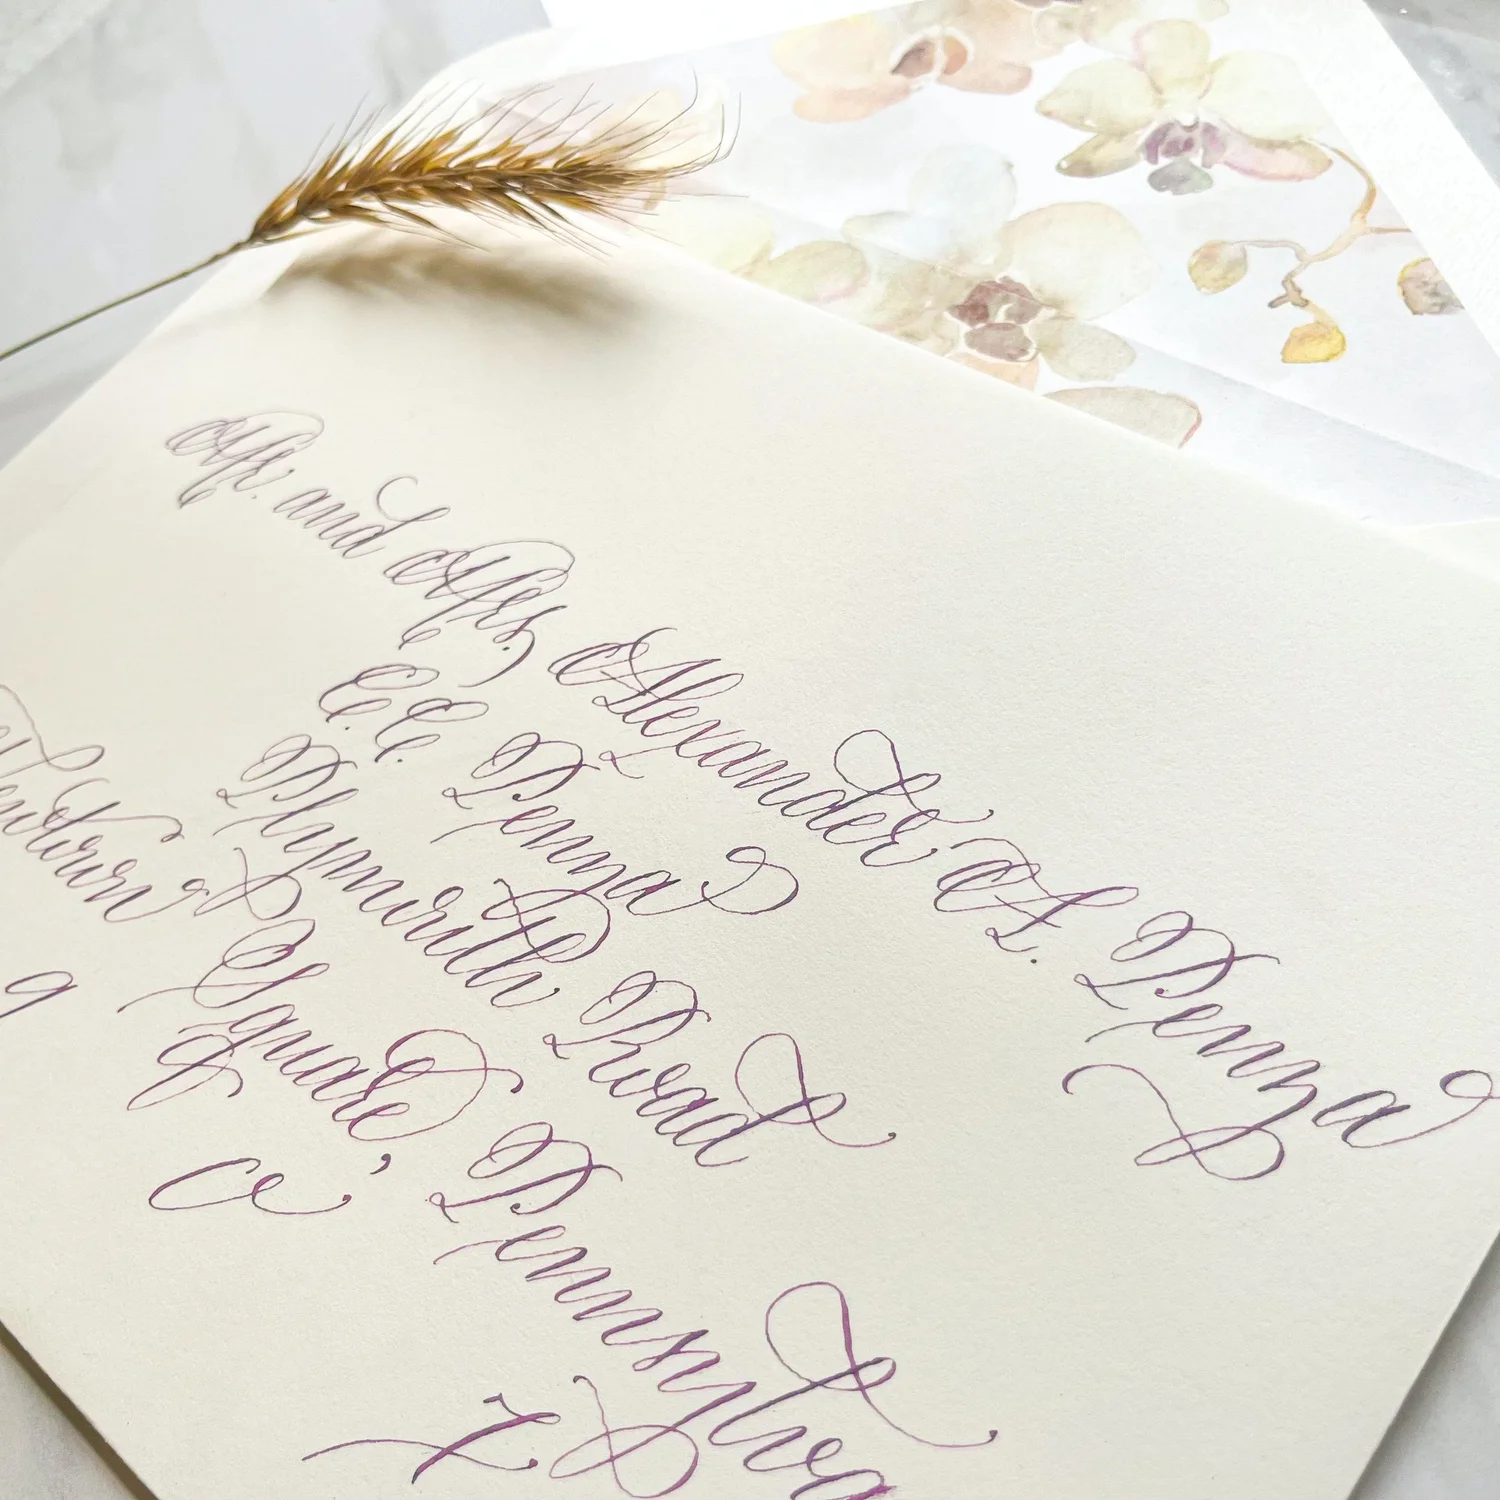 Mr. and Mrs. Alexander A. Penza
Penza
Plymouth Road
Newtown Square, Pennsylva
9 7